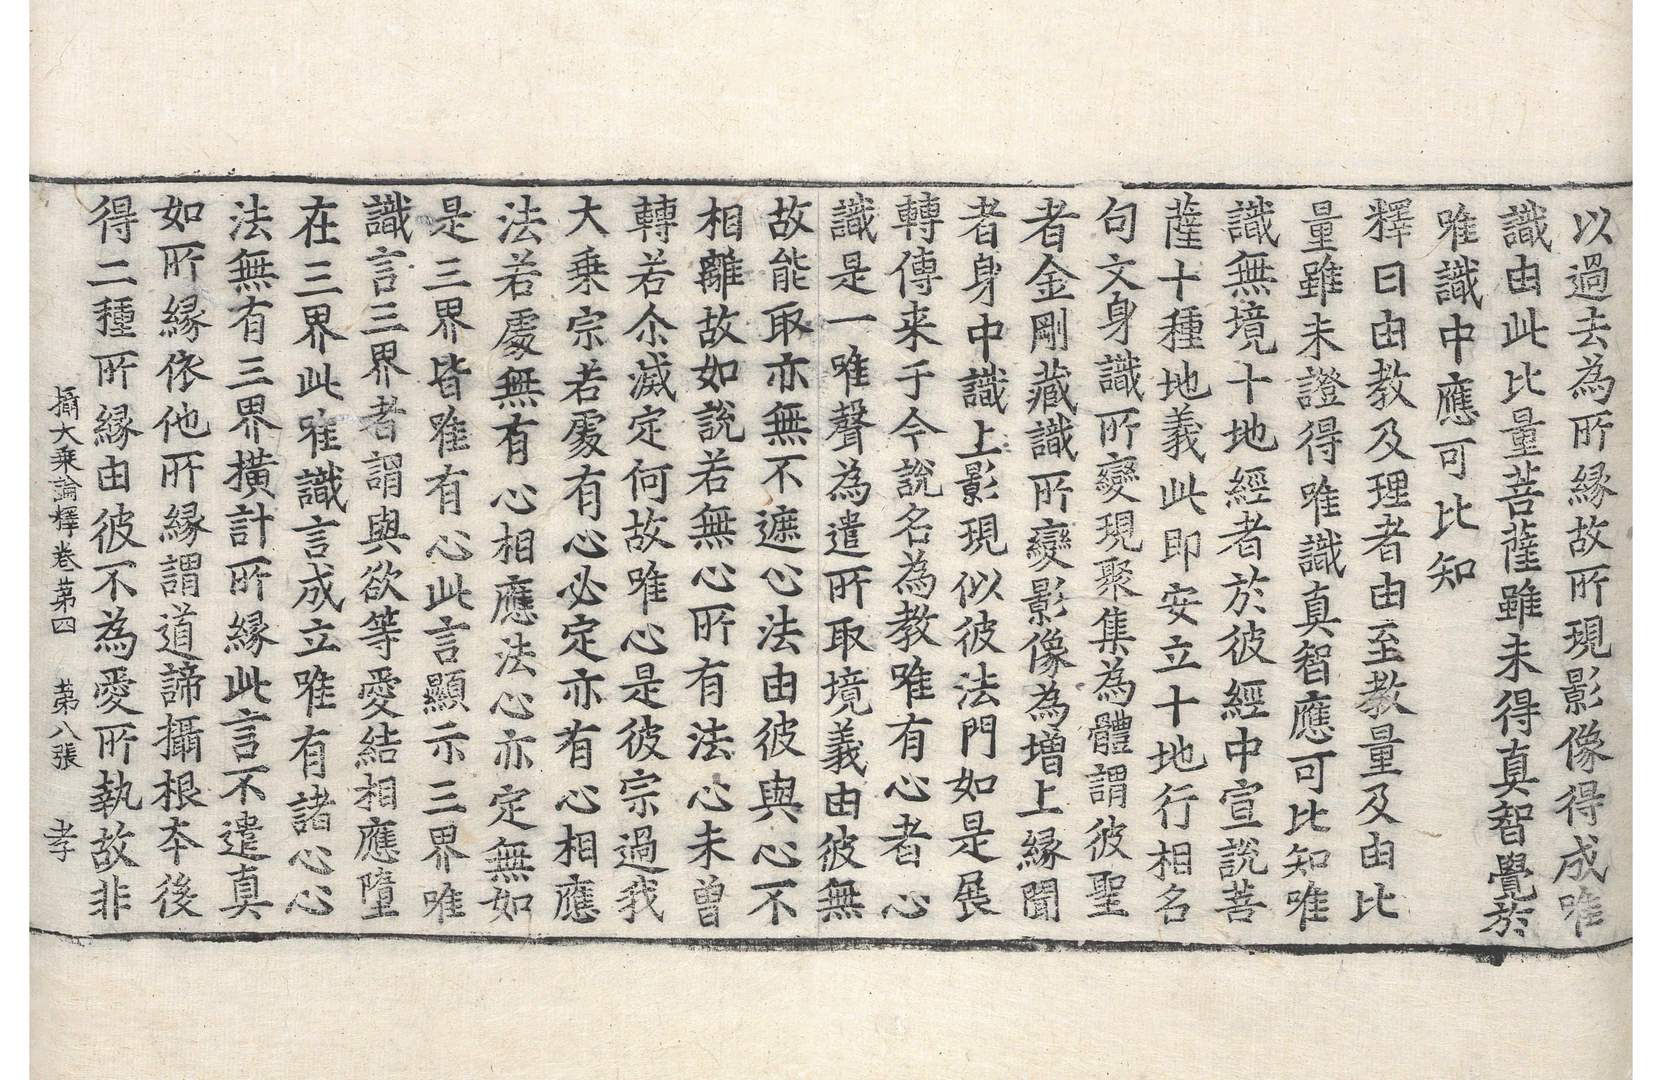 以過去為所縁故所現影像得成唯
識由此比量菩薩雖未得真智覺於
唯識中應可比知
釋曰由教及理者由至教量及由比
量雖未證得唯識真智應可比知唯
識無境十地經者於彼經中宣說菩
薩十種地義此即安立十地行相名
句文身識所變現聚集為體謂彼聖
者金剛藏識所變影像為增上縁聞
者身中識上影現似彼法門如是展
轉傳来于今說名為教唯有心者心
識是一唯聲為遣所取境義由彼無
故能取亦無不遮心法由彼與心不
相離故如說若無心所有法心未曾
轉若尒滅定何故唯心是彼宗過我
大乗宗若處有心必定亦有心相應
法若處無有心相應法心亦定無如
是三界皆唯有心此言顯示三界唯
識言三界者謂與欲等愛結相應墮
在三界此唯識言成立唯有諸心心
法無有三界横計所縁此言不遣真
如所縁依他所縁謂道諦攝根本後
得二種所縁由彼不為愛所執故非
攝大乗論釋卷苐四　苐八張　孝